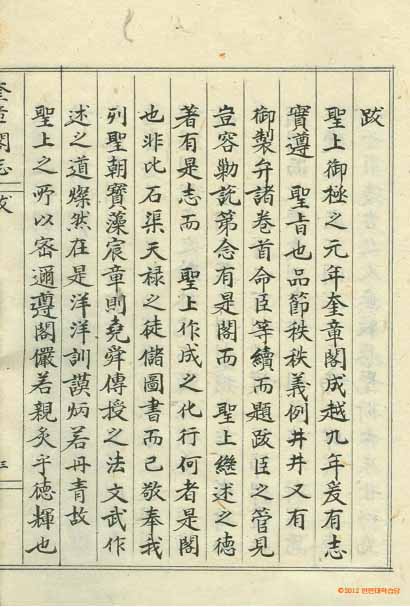 跋
聖上御極之元年奎章閣成越九年爰有志
實遵 聖旨也品節秩秩義例井井又有
御製弁諸卷首命臣等續而題跋臣之管見
豈容勦說第念有是閣而 聖上繼述之德
著有是志而 聖上作成之化行何者是閣
也非比石渠天禄之徒儲圖書而已敬奉我
列聖朝寶藻宸章則堯舜傳授之法文武作
述之道燦然在是洋洋訓謨炳若丹青故
聖上之所以密邇遵閣儼若親炙乎德輝也
奎章閣志
跋
©2012 한번대학습당